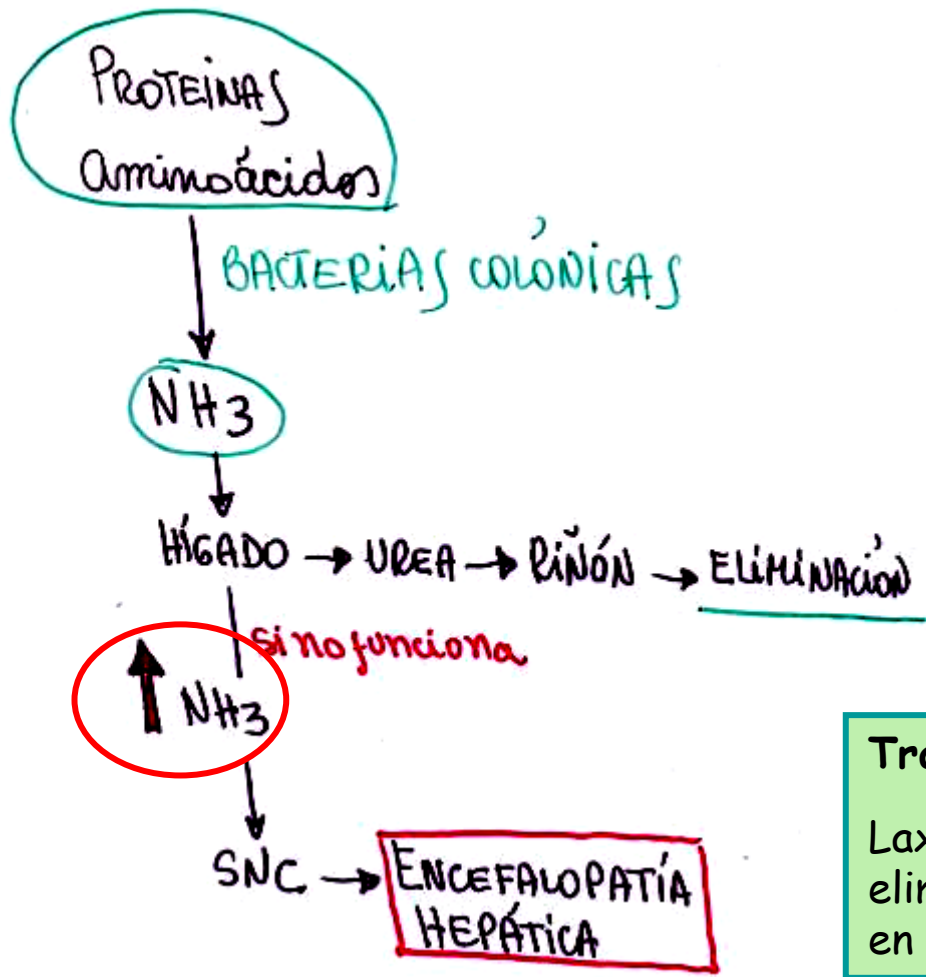 PROTEÍNAS
aminoácidos
BACTERIAS COLÓNICAS
NH3
HÍGADO → UREA → RIÑÓN → ELIMINACIÓN
si no funciona
↑ NH3
SNC → ENCEFALOPATÍA
HEPÁTICA